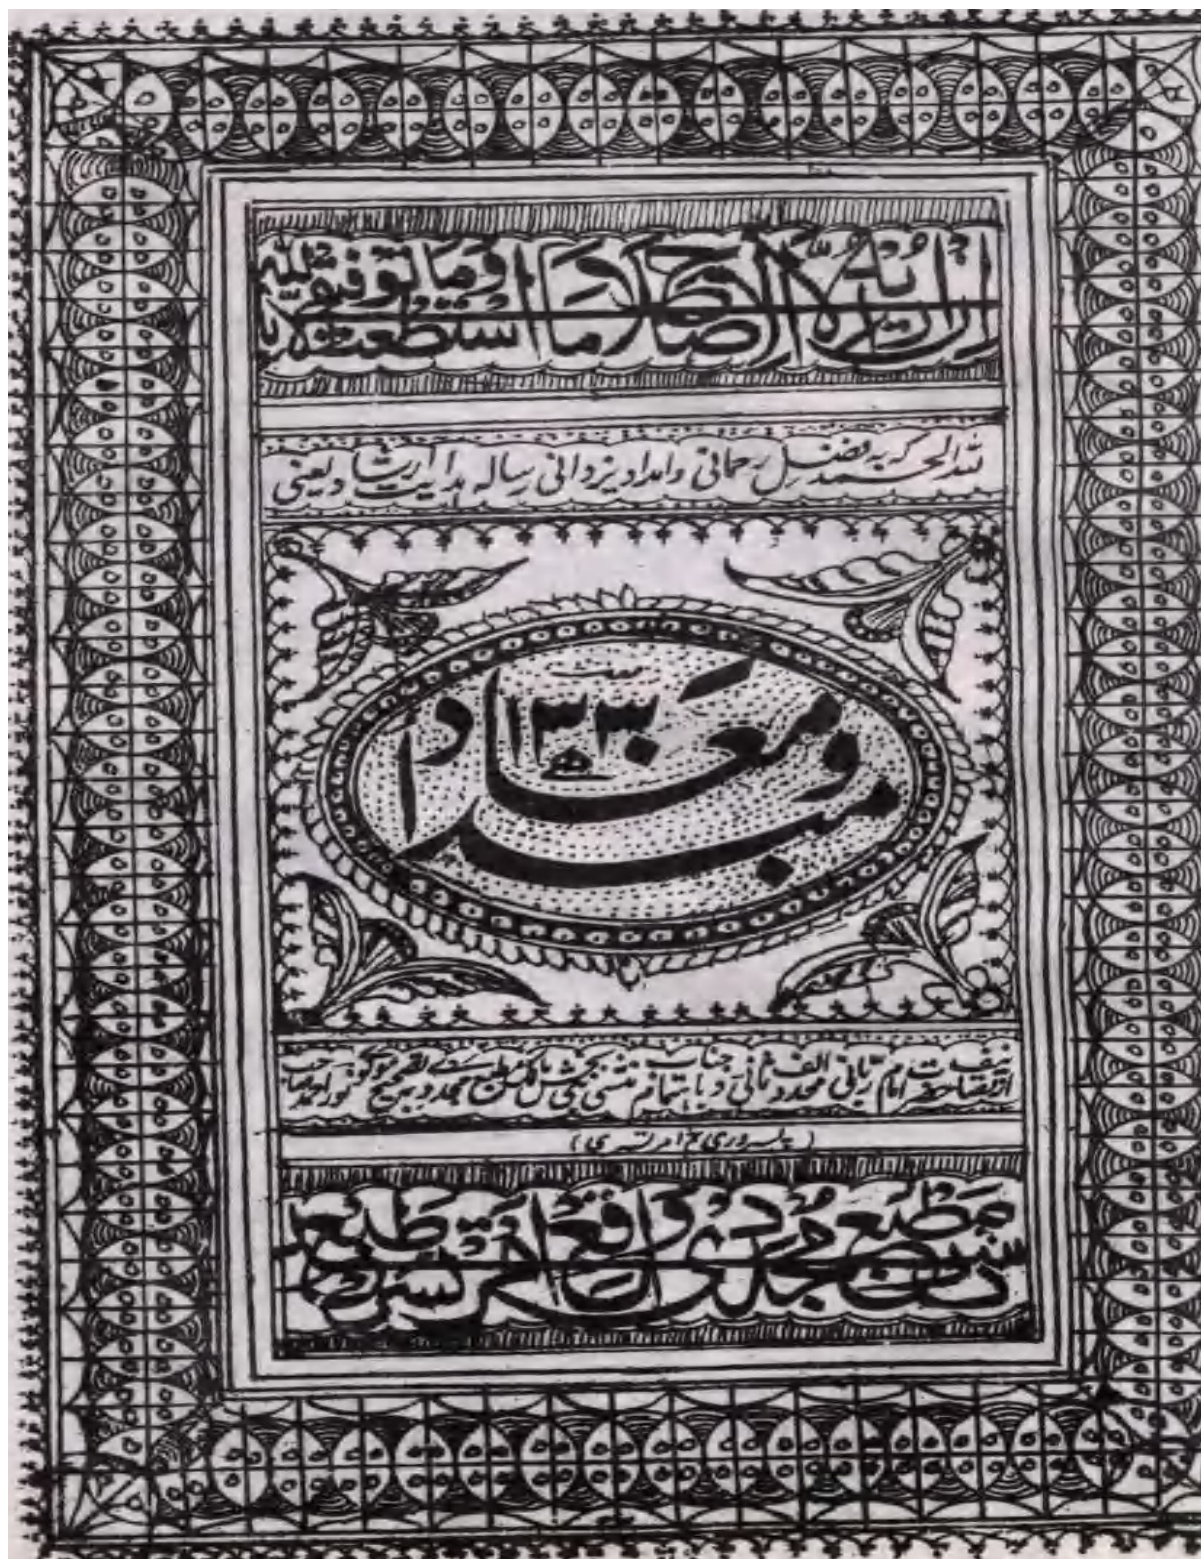 ان ارید الا الاصلاح ما استطعت وما توفیقی الا بالله
لله الحمد که به فضل رحمانی و امداد یزدانی رساله هدایت ارشاد یعنی
مبدا و معاد
سنه ۱۳۳۰ ھ
از تصنیفات حضرت امام ربانی مجدد الف ثانی و باهتمام جناب منشی نبی بخش مالک مطبع مجددی و بتصحیح مولوی نور احمد صاحب
(پسروری ثم امرتسری)
مطبع مجددی واقع امرتسر طبع